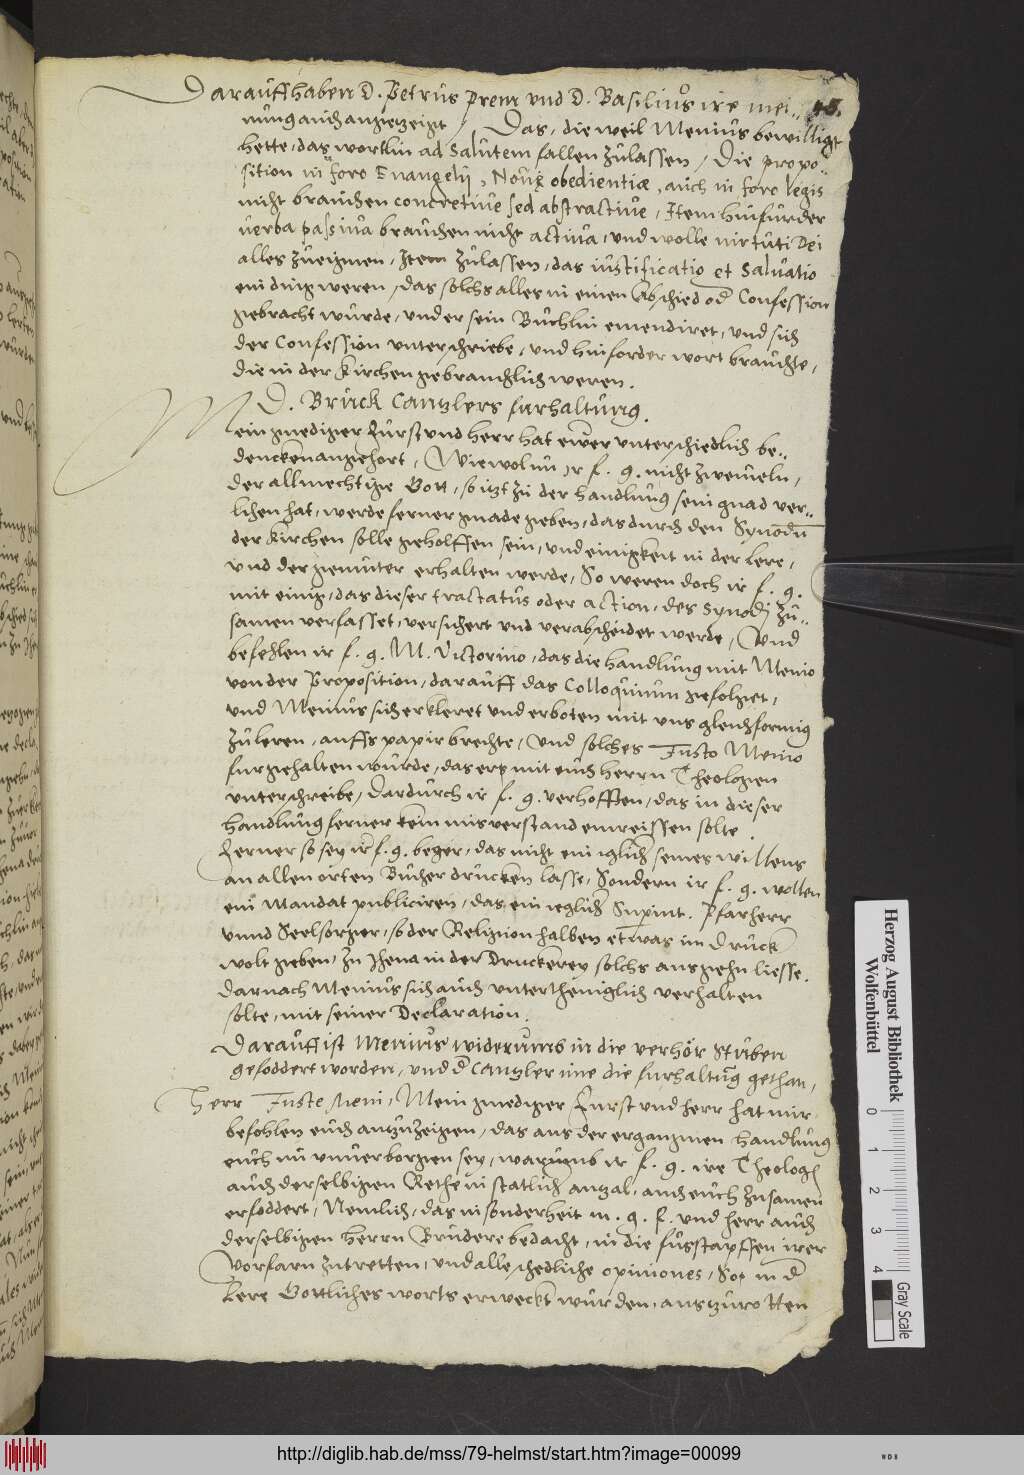 Darauff haben D. Petrus Prem und D. Basilius ire mei- 48.
nung auch angetzeigt / Das, die weil Menius bewilliget
hette, das wortlin ad Salutem fallen zulassen, Die propo-
sition in foro Euangelij, Nouę obedientiæ, auch in foro legis
nicht brauchen concretiue sed abstractiue, Item hinfurder
verba passiua brauchen nicht actiua, und wolle virtuti Dei
alles zueignen, Item zulassen, das iustificatio et Saluatio
ein ding weren, das solchs alles in einen Abschied od Confession
gebracht wurde, und er sein Buchlin emendiret, und sich
der Confession unterschriebe, und hinforder wort brauchte,
die in der Kirchen gebrauchlich weren.
D. Brück Cantzlers furhaltung.
Mein gnediger Furst und Herr hat ewer unterschiedlich be-
dencken angehort, Wiewol nu ir f. g. nicht zweiueln,
der allmechtige Gott, so itzt zu der handlung sein gnad ver-
lihen hat, werde ferner gnade geben, das durch den Synodu
der Kirchen solle geholffen sein, und einigkeit in der lere,
und der gemuter erhalten werde, So weren doch ir f. g.
mit einig, das dieser tractatus oder action, des Synodj zu-
samen verfasset, versichert und verabscheidet werde, Und
befehlen ir f. g. M. Victorino, das die handlung mit Menio
von der Proposition, darauff das Colloquium gefolget,
und Menius sich erkleret und erboten mit uns gleichformig
zuleren, auffs papir brechte, Und solches Justo Menio
furgehalten wurde, das ers mit euch Herrn Theologen
unterschreibe, Dardurch ir f. g. verhoffen, das in dieser
handlung ferner kein misverstand einreissen solte.
Ferner so sey ir f. g. beger, das nicht ein iglich seines willens
an allen orten Bücher drucken lasse, Sondern ir f. g. wollen
ein Mandat publiciren, das ein ieglich Supint. Pfarherr
unnd Seelsorger, so der Religion halben etwas im Druck
wolt geben, zu Jhena in der Druckerey solchs ausgehn liesse.
Darnach Menius sich auch untertheniglich verhalten
solte, mit seiner Declaration.
Darauff ist Menius widerumb in die verhör Stuben
gefoddert worden, und d Cantzler ime die furhaltung gethan,
Herr Juste Meni, Mein gnediger Furst und Herr hat mir
befohlen euch antzuzeigen, das aus der ergangnen handlung
euch nu unuerborgen sey, warumb ir f. g. ire Theologen
auch derselbigen Rethe in statlicher antzal, auch euch zusamen
erfoddert, Nemlich, das insonderheit m. g. f. und herr auch
derselbigen Herrn Brudere bedacht, in die fusstapffen irer
Vorfarn zutretten, und alle schedliche opiniones, So in d
Lere Gottliches worts erweckt wurden, auszurotten
Herzog August Bibliothek
Wolfenbüttel
0 1 2 3 4
Gray Scale
http://diglib.hab.de/mss/79-helmst/start.htm?image=00099
WDB